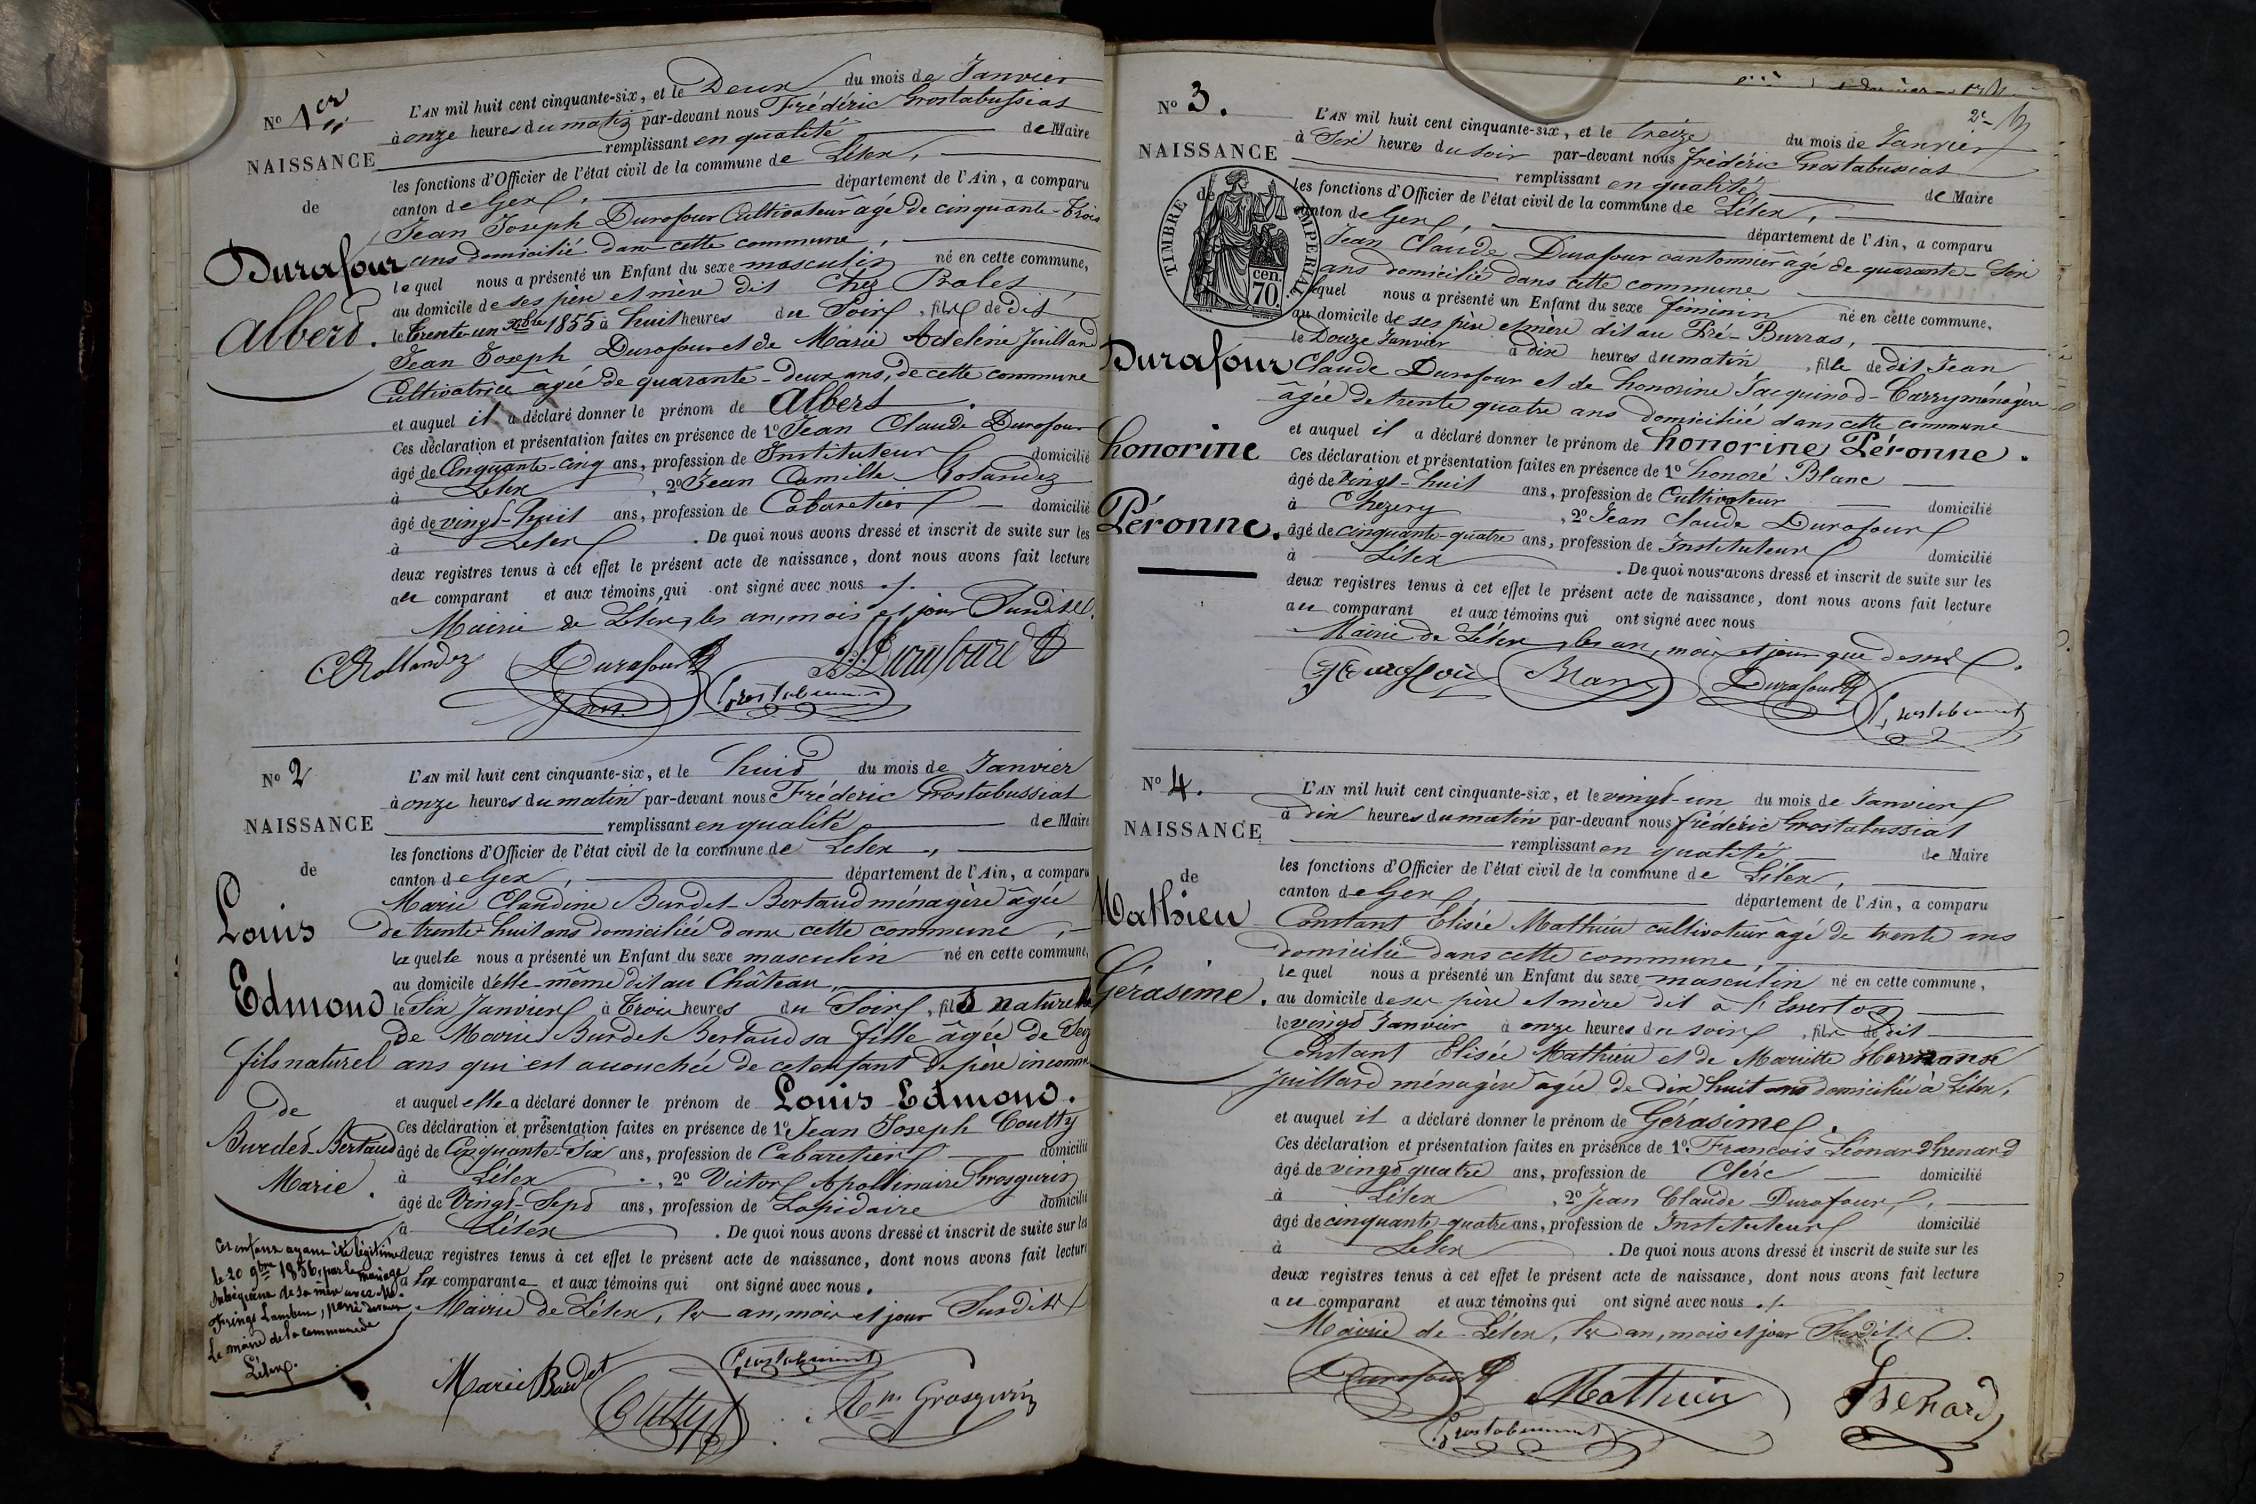 No 1er
NAISSANCE
de
Durafour
Albert.
L'AN mil huit cent cinquante-six, et le Deux du mois de Janvier
à onze heures du matin par-devant nous Frédéric Grostabussiat
remplissant en qualité de Maire
les fonctions d'Officier de l'état civil de la commune de Lélex,
canton de Gex, département de l'Ain, a comparu
Jean Joseph Durafour Cultivateur âgé de cinquante-trois
ans domicilié dans cette commune,
lequel nous a présenté un Enfant du sexe masculin né en cette commune,
au domicile de ses père et mère dit Chez
le trente-un Xbre 1855 à huit heures du Soir, fils de dit
Jean Joseph Durafour et de Marie Adeleine Juillard
Cultivatrice âgée de quarante-deux ans, de cette commune
et auquel il a déclaré donner le prénom de Albert.
Ces déclaration et présentation faites en présence de 1º Jean Claude Durafour
âgé de Cinquante-cinq ans, profession de Instituteur domicilié
à Lélex, 2º Jean Camille Rolandez
âgé de vingt-huit ans, profession de Cabaretier domicilié
à Lélex. De quoi nous avons dressé et inscrit de suite sur les
deux registres tenus à cet effet le présent acte de naissance, dont nous avons fait lecture
au comparant et aux témoins qui ont signé avec nous ./.
Mairie de Lélex, les an, mois et jour Susdits.
CRollandez Durafour JJDurafour
Grostabussiat
No 2
NAISSANCE
de
Louis
Edmond
fils naturel
de
Burdet-Bertaud
Marie.
L'AN mil huit cent cinquante-six, et le huit du mois de Janvier
à onze heures du matin par-devant nous Fréderic Grostabussiat
remplissant en qualité de Maire
les fonctions d'Officier de l'état civil de la commune de Lelex,
canton de Gex, département de l'Ain, a comparu
Marie Claudine Burdet-Bertaud ménagère âgée
de trente-huit ans domiciliée dans cette commune,
laquelle nous a présenté un Enfant du sexe masculin né en cette commune,
au domicile d'elle-même dit au Château,
le Six Janvier à trois heures du Soir, fils naturel
de Marie Burdet Bertaud sa fille âgée de Seiz
ans qui est accouchée de cet enfant de père inconnu
et auquel elle a déclaré donner le prénom de Louis-Edmond.
Ces déclaration et présentation faites en présence de 1º Jean Joseph Coutty
âgé de Cinquante-Six ans, profession de Cabaretier domicilié
à Lélex, 2º Victor Apollinaire Grosgurin
âgé de Vingt-Sept ans, profession de Lapidaire domicilié
à Lélex. De quoi nous avons dressé et inscrit de suite sur les
deux registres tenus à cet effet le présent acte de naissance, dont nous avons fait lecture
à la comparante et aux témoins qui ont signé avec nous.
Mairie de Lélex, les an, mois et jour Susdits
Cet enfant ayant été légitimé
le 20 9bre 1856, par le mariage
subséquent de sa mère avec Mr.
Lambert, passé devant
Le maire de la commune de
Lélex.
Marie Burdet Grostabussiat
Coutty Grosgurin
No 3.
NAISSANCE
de
TIMBRE IMPERIAL
cen.
70.
Durafour
honorine
Péronne.
2e
L'AN mil huit cent cinquante-six, et le treize du mois de Janvier
à Six heures du soir par-devant nous Frédéric Grostabussiat
remplissant en qualité de Maire
les fonctions d'Officier de l'état civil de la commune de Lélex,
canton de Gex, département de l'Ain, a comparu
Jean Claude Durafour cantonnier âgé de quarante-Six
ans domicilié dans cette commune
lequel nous a présenté un Enfant du sexe féminin né en cette commune,
au domicile de ses père et mère dit au Pré-Burras,
le Douze Janvier à dix heures du matin, fille de dit Jean
Claude Durafour et de honorine Jacquinod-Carry ménagère
âgée de trente quatre ans domiciliée dans cette commune
et auquel il a déclaré donner le prénom de honorine Péronne.
Ces déclaration et présentation faites en présence de 1º honoré Blanc
âgé de Vingt-huit ans, profession de Cultivateur domicilié
à Chezery, 2º Jean Claude Durafour
âgé de cinquante-quatre ans, profession de Instituteur domicilié
à Lélex. De quoi nous avons dressé et inscrit de suite sur les
deux registres tenus à cet effet le présent acte de naissance, dont nous avons fait lecture
au comparant et aux témoins qui ont signé avec nous
Mairie de Lélex, les an, mois et jour que dessus.
Blanc Durafour
Grostabussiat
No 4.
NAISSANCE
de
Mathieu
Gérasime.
L'AN mil huit cent cinquante-six, et le vingt-un du mois de Janvier
à dix heures du matin par-devant nous frédéric Grostabussiat
remplissant en qualité de Maire
les fonctions d'Officier de l'état civil de la commune de Lélex,
canton de Gex, département de l'Ain, a comparu
Constant Elisée Mathieu cultivateur âgé de trente ans
domicilié dans cette commune,
lequel nous a présenté un Enfant du sexe masculin né en cette commune,
au domicile de ses père et mère dit à l'Essertos
le vingt Janvier à onze heures du soir, fils de dit
Constant Elisée Mathieu et de Mariette Hermance
Juillard ménagère âgée de dix huit ans domiciliée à Lélex,
et auquel il a déclaré donner le prénom de Gérasime.
Ces déclaration et présentation faites en présence de 1º François Léonard Grenard
âgé de vingt quatre ans, profession de Clerc domicilié
à Lélex, 2º Jean Claude Durafour,
âgé de cinquante-quatre ans, profession de Instituteur domicilié
à Lelex. De quoi nous avons dressé et inscrit de suite sur les
deux registres tenus à cet effet le présent acte de naissance, dont nous avons fait lecture
au comparant et aux témoins qui ont signé avec nous ./.
Mairie de Lélex, les an, mois et jour Susdits.
Durafour Mathieu Grenard
Grostabussiat